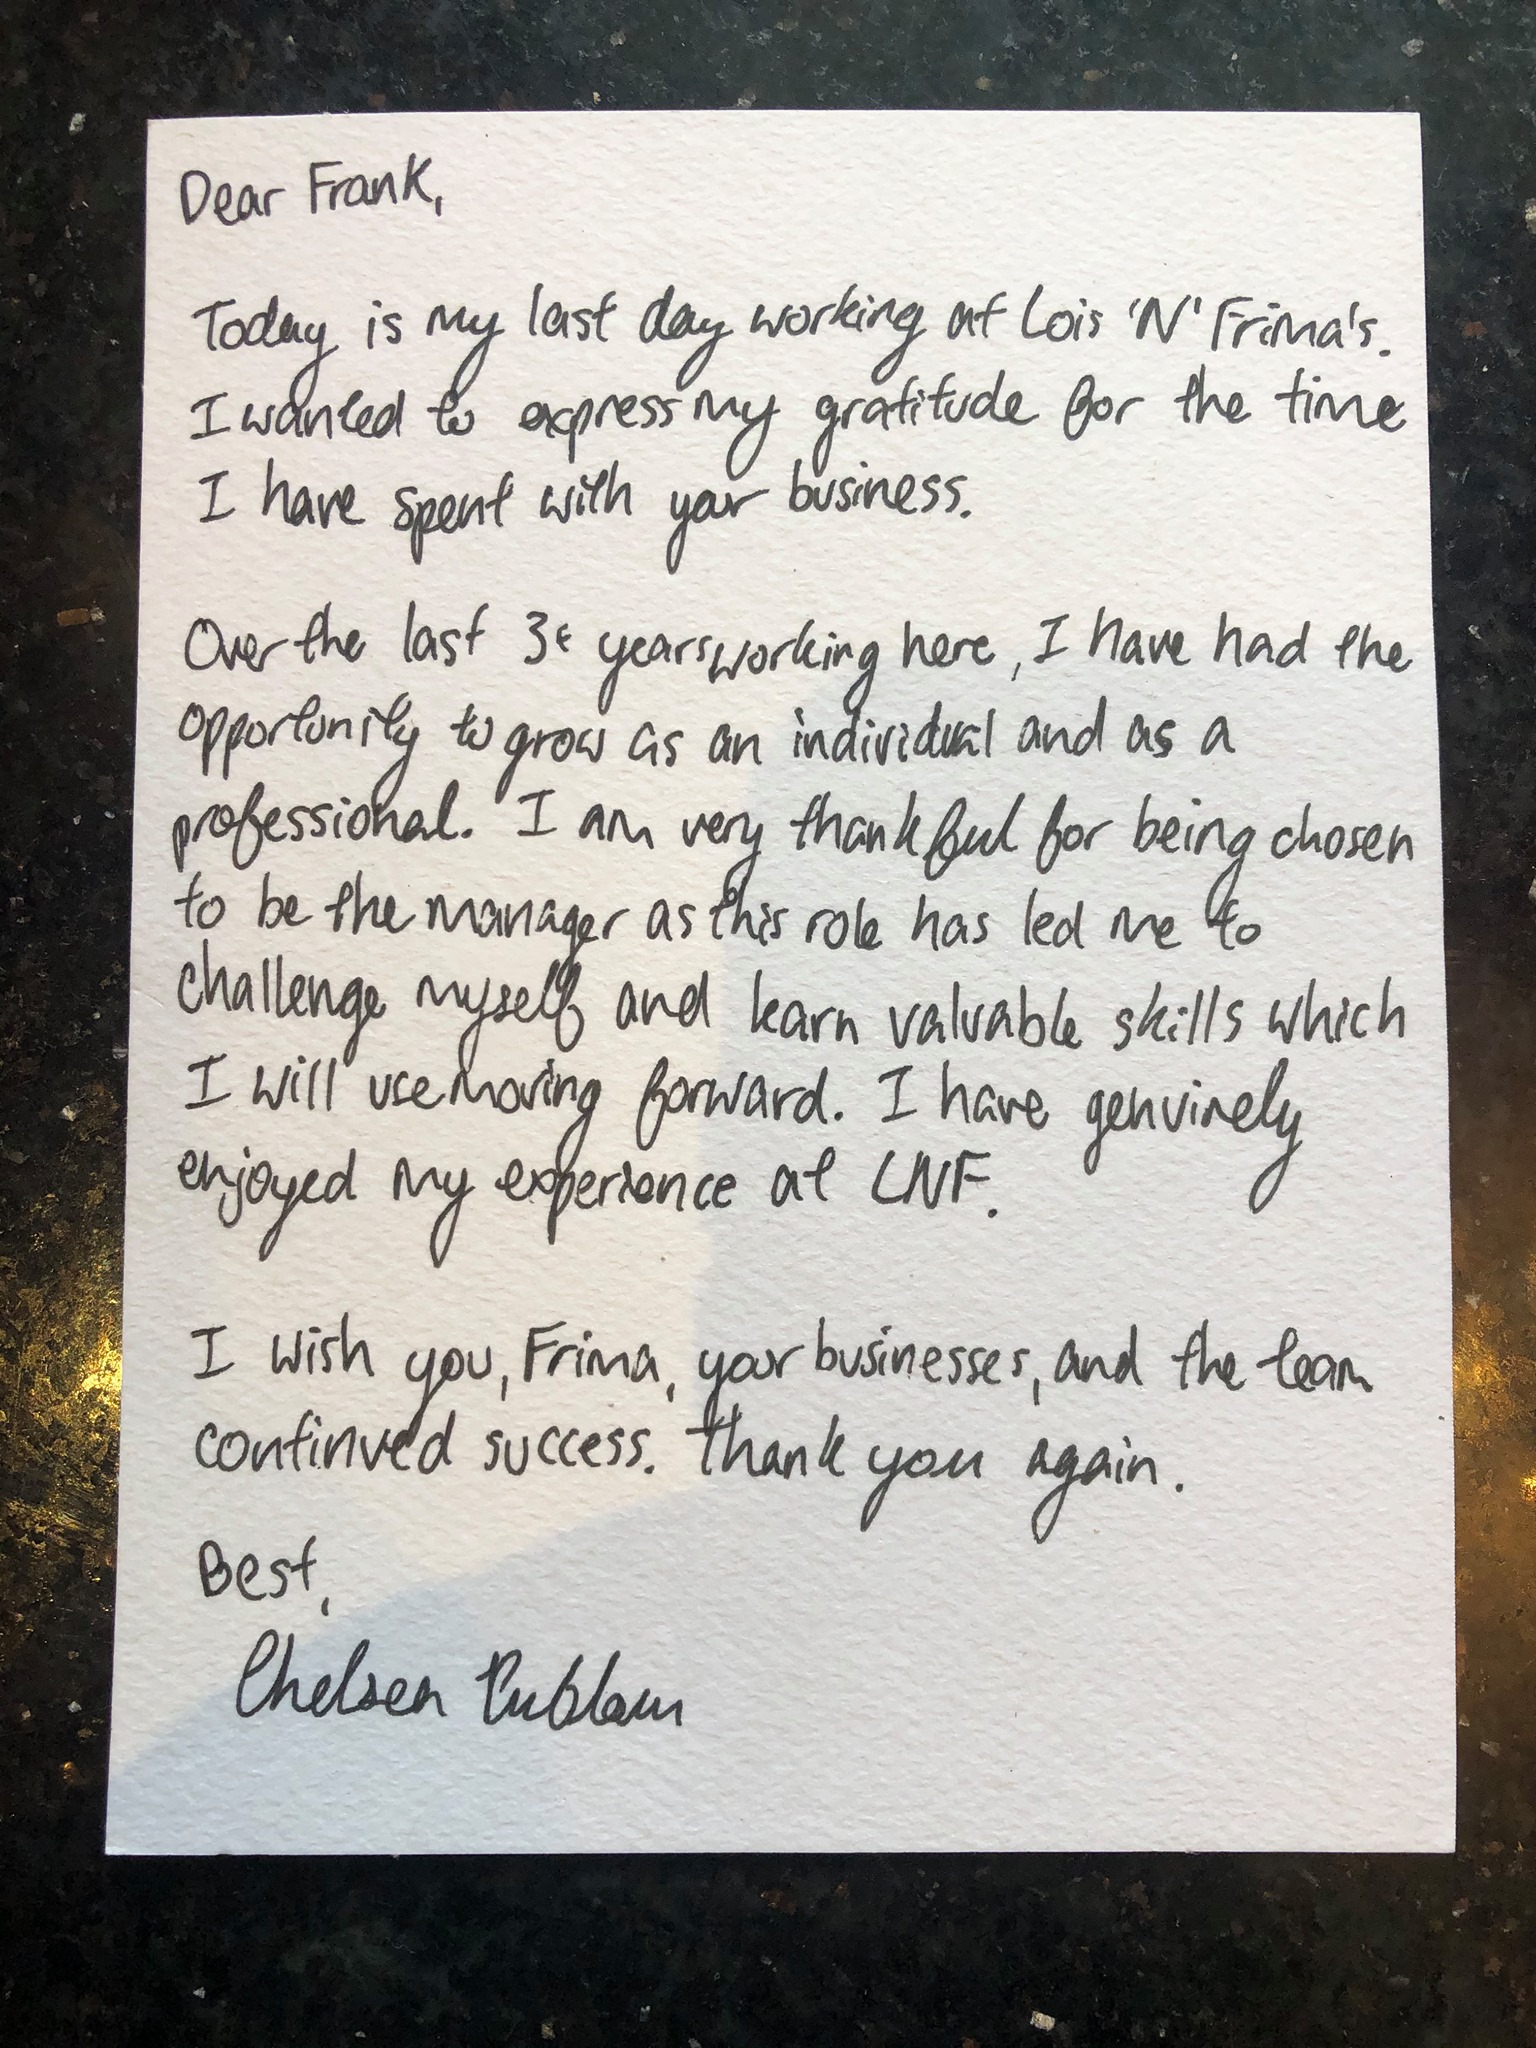 Dear Frank,
Today is my last day working at Lois 'N' Frima's.
I wanted to express my gratitude for the time
I have spent with your business.
Over the last 3+ years working here, I have had the
opportunity to grow as an individual and as a
professional. I am very thankful for being chosen
to be the manager as this role has led me to
challenge myself and learn valuable skills which
I will use moving forward. I have genuinely
enjoyed my experience at LNF.
I wish you, Frima, your businesses, and the team
continued success. Thank you again.
Best,
Chelsea